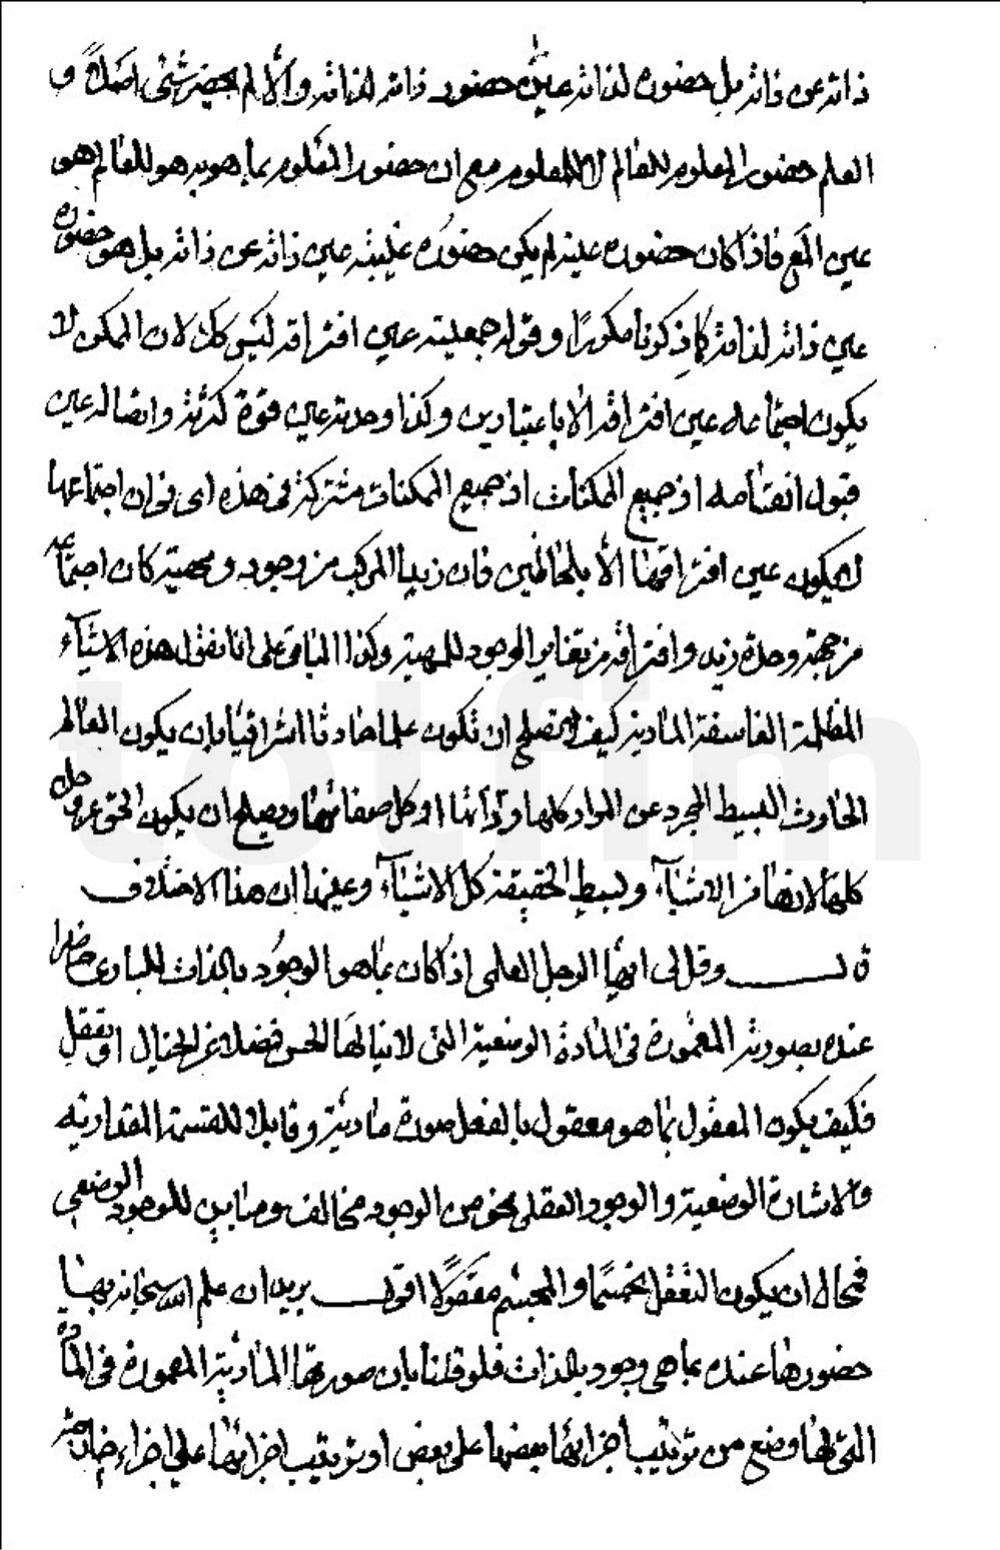 ذاته عن ذاته بل حضوره لذاته عين حضور ذاته لذاته والا لم يحضر شئ اصلاً و
العلم حضور المعلوم للعالم لا للمعلوم مع ان حضور المعلوم بما هو به هو للعالم هو
عين المع فاذا كان حضوره عينه لم يكن حضوره غيبته عين ذاته عن ذاته بل هو حضوره
عين ذاته لذاته كما ذكرنا مكررًا وقوله جمعيته عين افتراقه ليس كك لان الممكن لا
يكون اجتماعه عين افتراقه الا باعتبارين وكذا وحدته عين قوة كثرته واتصاله عين
قبول انقسامه اذ جميع الممكنات اذ جميع الممكنات مشتركة فى هذه اى فى ان اجتماعها
لا يكون عين افتراقها الا بلحاظين فان زيدا المركب من وجود ومهية كان اجتماعه
من جهة وحدة زيد وافتراقه من تغاير الوجود للمهية وكذا الباقى على انا نقول هذه الاشيآء
المظلمة الغاسقة المادية كيف لا تصلح ان تكون علما حادثا اشراقيا بان يكون العالم
الحادث البسيط المجرد عن المواد كلها وذاتها او كل صفاتها ويصلح ان يكون الحق عز وجل
كلها لانها من الاشيآء وبسيط الحقيقة كل الاشيآء وعينها ان هذا الاختلاف
قال وقل لى ايها الرجل العلمى اذ كان بما هو الوجود بالذات للبارى حاضرا
عنده بصورته المغمورة فى المادة الوضعية التى لا ينالها الحس فضلا عن الخيال او تعقل
فكيف يكون المعقول بما هو معقول بالفعل صورة مادية وقابلا للقسمة المقدارية
والاشارة الوضعية والوجود العقلى نحو من الوجود مخالف ومباين للوجود الوضعى
فمحال ان يكون التعقل تجسما والمجسم معقولا اقول يريد ان علم الله سبحانه بها
حضورها عنده بما هى وجود بالذات فلو قلنا بان صورتها المادية المغمورة فى المادة
التى لها وضع من ترتيب اجزائها بعضها على بعض او ترتيب اجزائها على اجزاء خارجة